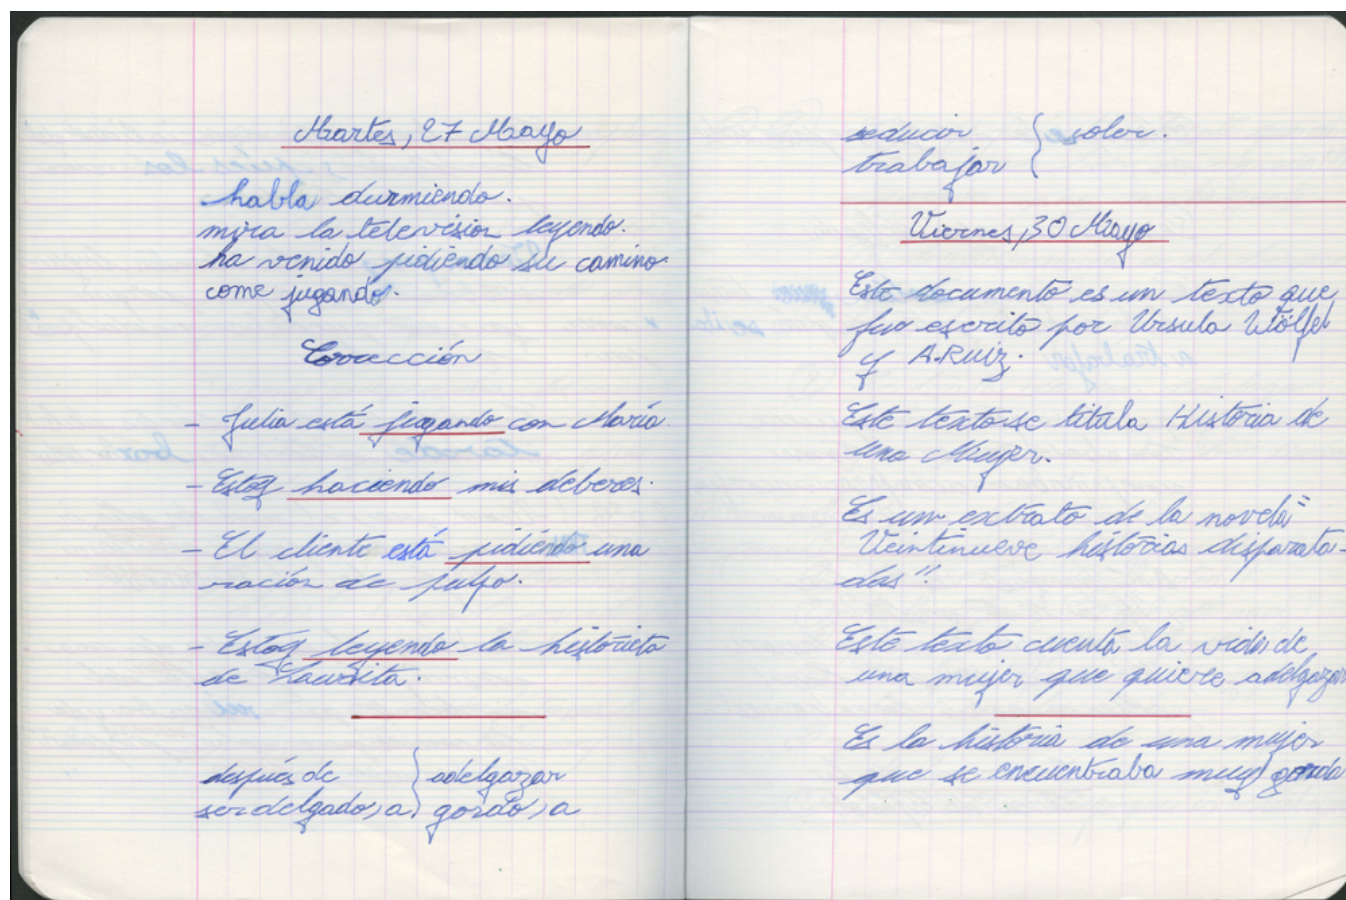 Martes, 27 Mayo
habla durmiendo.
mira la televisión leyendo.
ha venido pidiendo su camino.
come jugando.
Corrección
- Julia está jugando con María
- Estoy haciendo mis deberes.
- El cliente está pidiendo una
ración de pulpo.
- Estoy leyendo la historieta
de Laurita.
después de } adelgazar
ser delgado, a } gordo, a
seducir { soler.
trabajar
Viernes, 30 Mayo
Este documento es un texto que
fue escrito por Ursula Wölfel
y A.Ruiz.
Este texto se titula Historia de
una Mujer.
Es un extrato de la novela "
Veintinueve historias disparata-
das".
Este texto cuenta la vida de
una mujer que quiere adelgazar
Es la historia de una mujer
que se encuentraba muy gorda